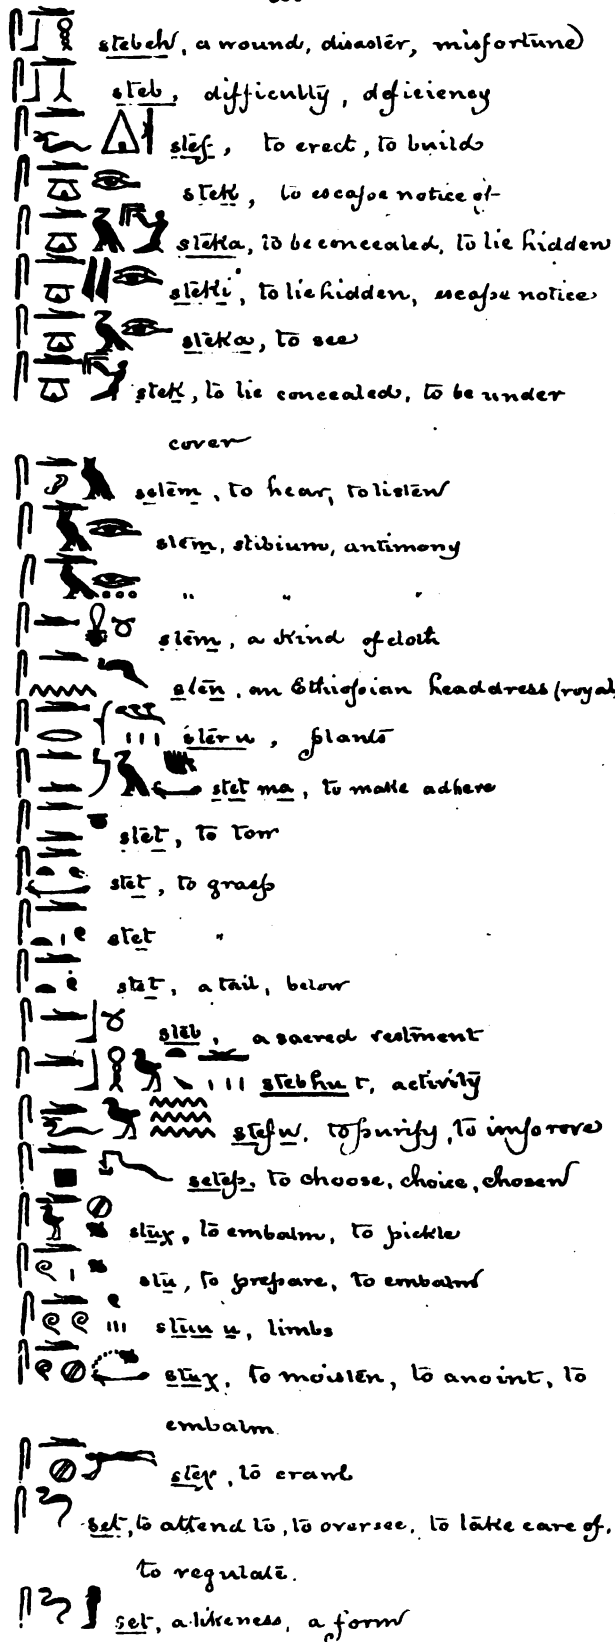 stebeh, a wound, disaster, misfortune
steb, difficulty, deficiency
stef, to erect, to build
stek, to escape notice of
steka, to be concealed, to lie hidden
steki, to lie hidden, escape notice
steka, to see
stek, to lie concealed, to be under
cover
setem, to hear, to listen
stem, stibium, antimony
" " "
stem, a kind of cloth
sten, an Ethiopian headdress (royal
ster u, plants
stet ma, to make adhere
stet, to tow
stet, to grasp
stet "
stet, a tail, below
steb, a sacred vestment
stebhu t, activity
stefu, to purify, to improve
setep, to choose, choice, chosen
stuχ, to embalm, to pickle
stu, to prepare, to embalm
stuu u, limbs
stuχ, to moisten, to anoint, to
embalm.
steχ, to crawl
set, to attend to, to oversee, to take care of,
to regulate.
set, a likeness, a form